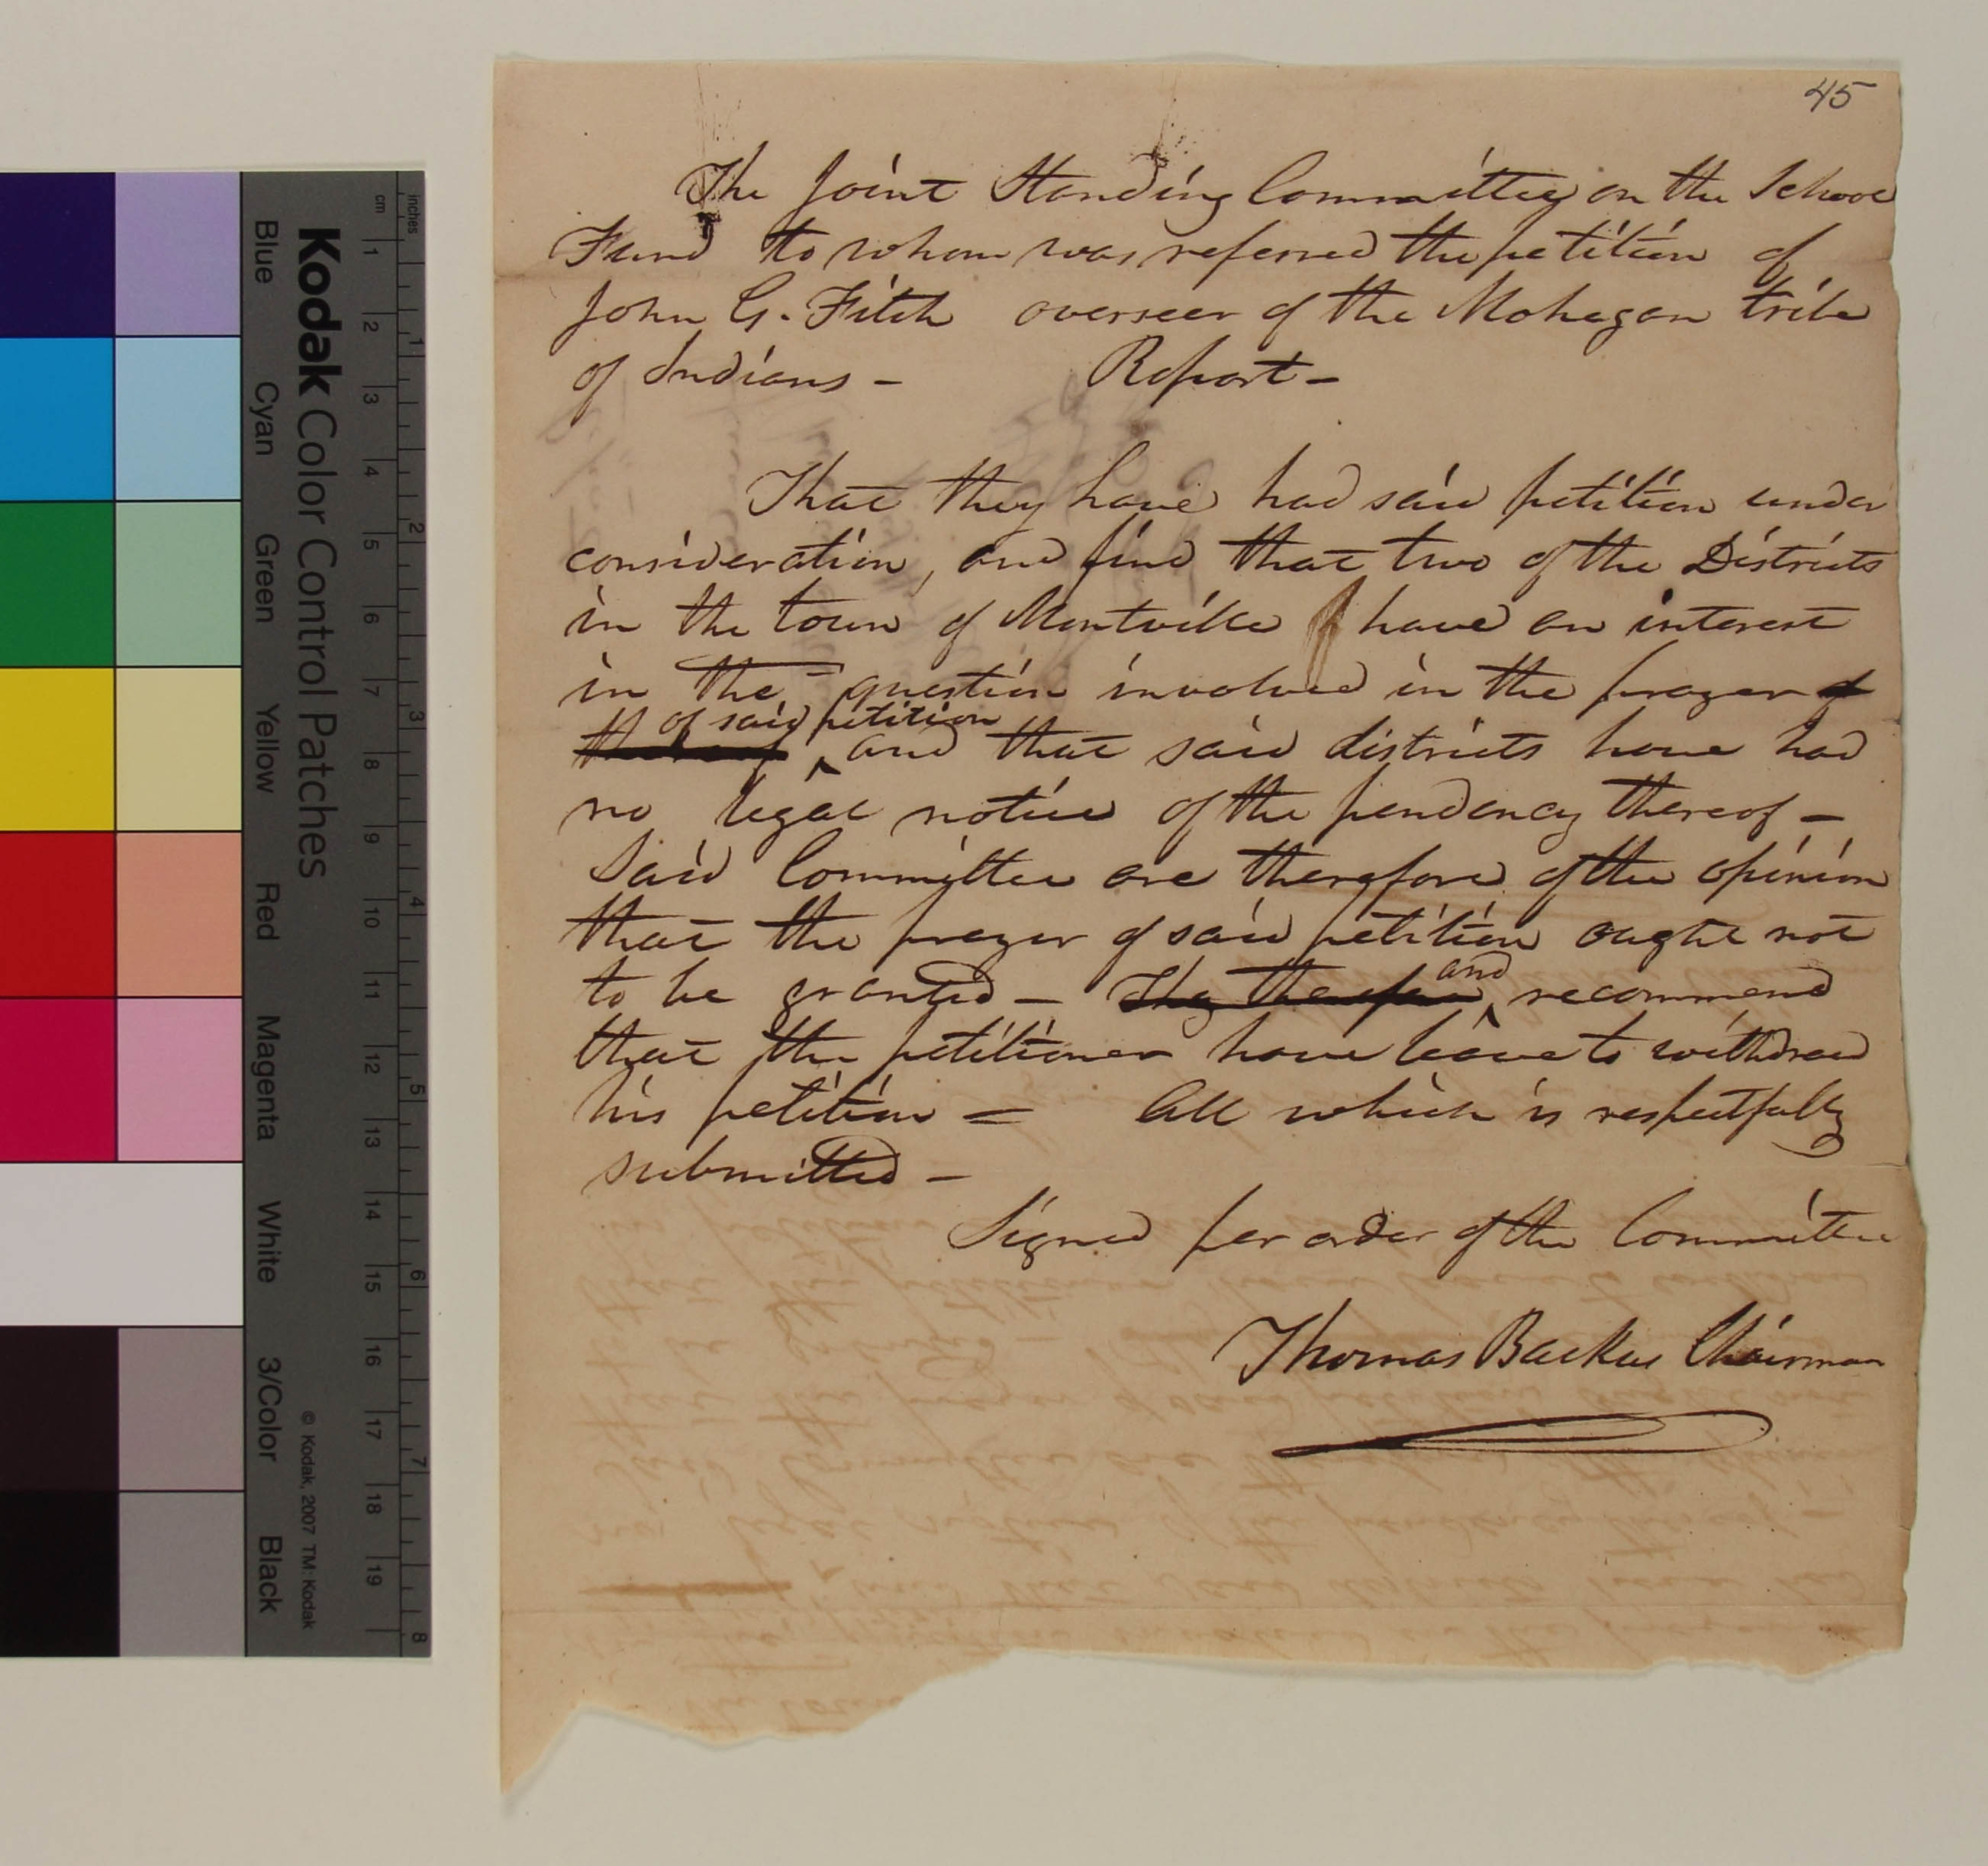 45
The Joint Standing Committee on the School
Fund to whom was referred the petition of
John G. Fitch overseer of the Mohegan tribe
of Indians - Report -
That they have had said petition under
consideration, and find that two of the Districts
in the town of Montville have an interest
in the question involved in the prayer of
thereof of said petition and that said districts have had
no legal notice of the pendency thereof -
Said Committee are therefore of the opinion
that the prayer of said petition ought not
to be granted - They therefore and recommend
that the petitioner have leave to withdraw
his petition = All which is respectfully
submitted -
Signed per order of the Committee
Thomas Backus Chairman
Kodak Color Control Patches
Blue Cyan Green Yellow Red Magenta White 3/Color Black
© Kodak, 2007 TM: Kodak
cm 1 2 3 4 5 6 7 8 9 10 11 12 13 14 15 16 17 18 19
inches 1 2 3 4 5 6 7 8